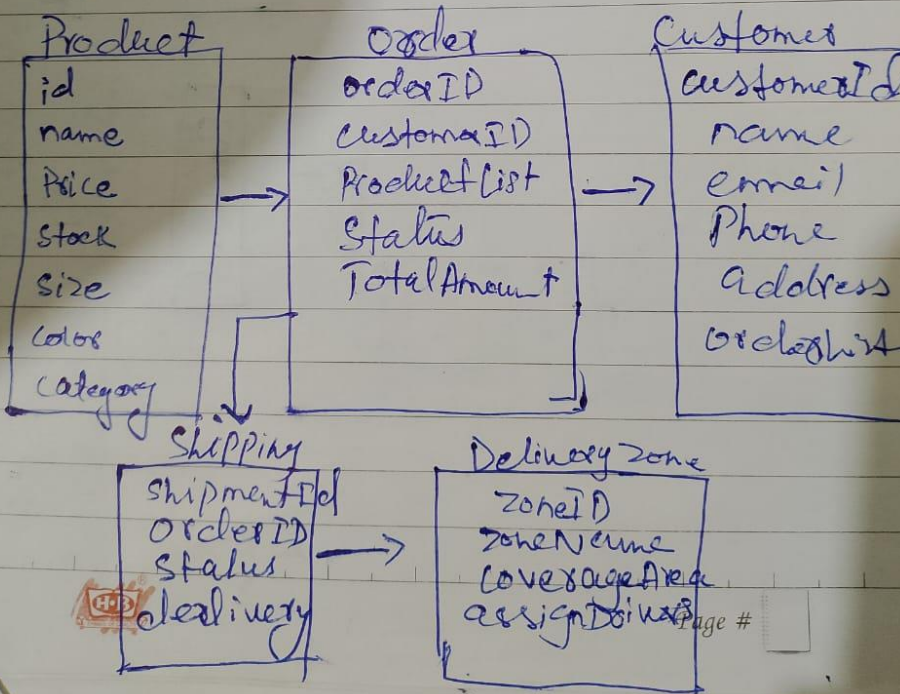 Product
id
name
Price
Stock
Size
Color
Category
Order
orderID
CustomerID
ProductList
Status
TotalAmount
Customer
customerId
name
email
Phone
address
ordersList
Shipping
ShipmentId
OrderID
Status
derlivery
Delivery Zone
ZoneID
ZoneName
CoverageArea
assignDrivers
HB
Page #